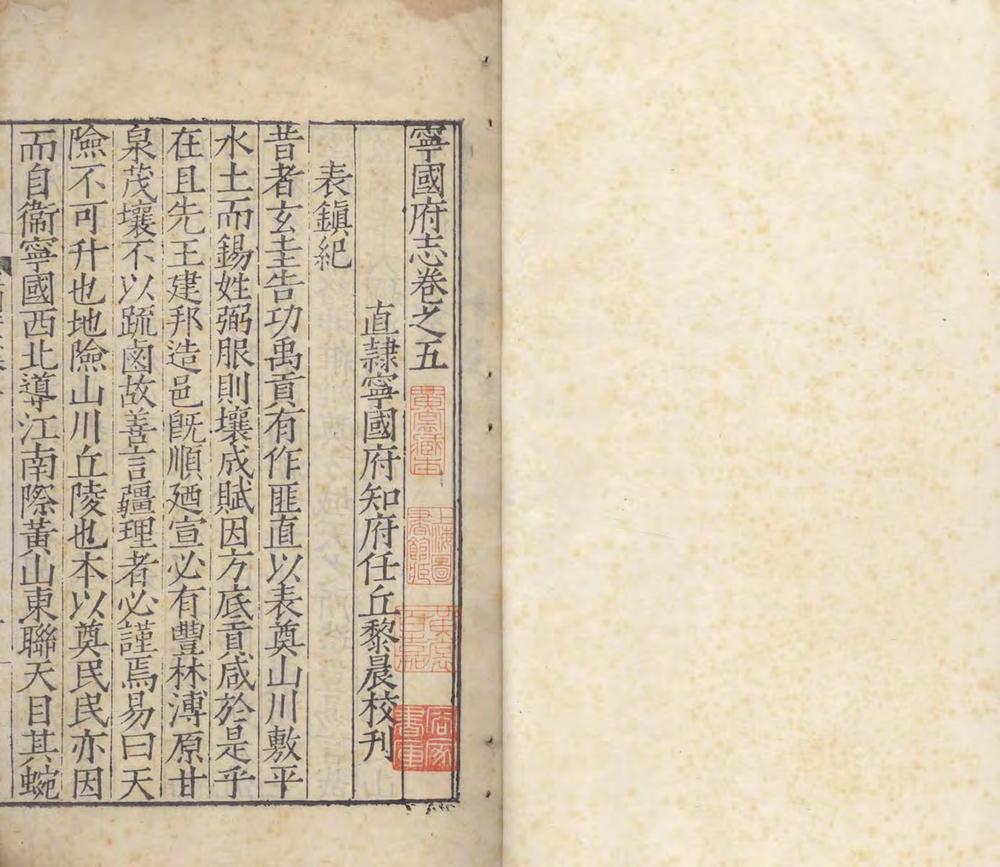 寧國府志卷之五
直隸寧國府知府任丘黎晨校刊
表鎮紀
昔者玄圭告功禹貢有作匪直以表奠山川敷平
水土而錫姓弼服則壤成賦因方底貢咸於是乎
在且先王建邦造邑旣順廼宣必有豐林溥原甘
泉茂壤不以疏鹵故善言疆理者必謹焉易曰天
險不可升也地險山川丘陵也本以奠民民亦因
而自衞寧國西北導江南際黃山東聯天目其蜿
上海圖書館藏